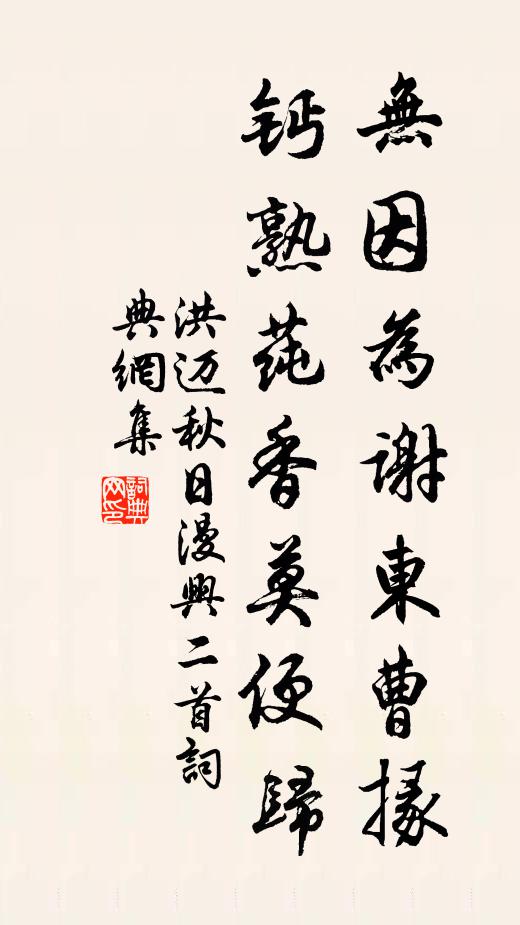 無因為謝東曹掾
鈣熟莼香莫便歸
洪迈秋日漫興二首詞
典網集
詞典
网印